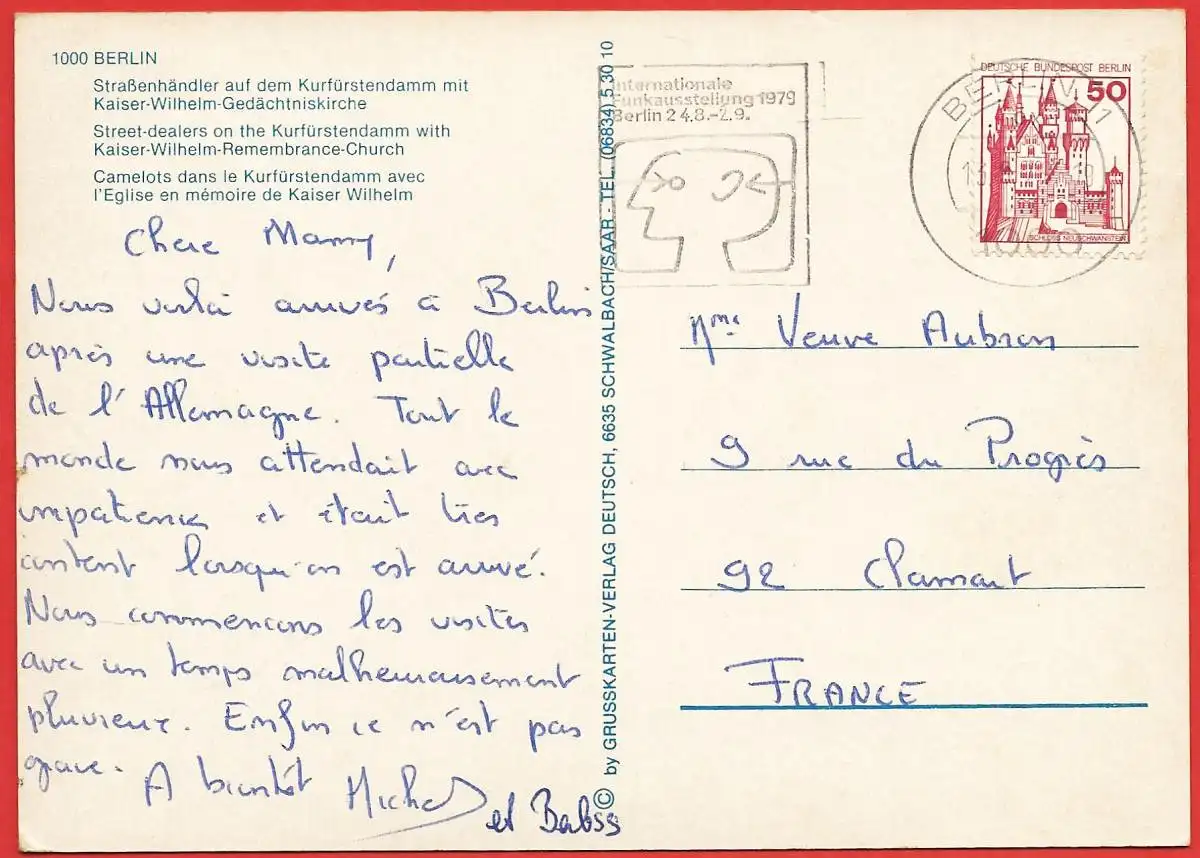 1000 BERLIN
Straßenhändler auf dem Kurfürstendamm mit
Kaiser-Wilhelm-Gedächtniskirche
Street-dealers on the Kurfürstendamm with
Kaiser-Wilhelm-Remembrance-Church
Camelots dans le Kurfürstendamm avec
l'Eglise en mémoire de Kaiser Wilhelm
Chere Mamy,
Nous voilà arrivés à Berlin
après une visite partielle
de l'Allemagne. Tout le
monde nous attendait avec
impatience et était très
content lorsqu'on est arrivé.
Nous commencons les visites
avec un temps malheureusement
pluvieux. Enfin ce n'est pas
grave. A bientôt Michel
et Babss
© by GRUSSKARTEN-VERLAG DEUTSCH, 6635 SCHWALBACH/SAAR - TEL. (06834) 5 30 10
Internationale
Funkausstellung 1979
Berlin 24.8.-2.9.
BERLIN 11
1000
DEUTSCHE BUNDESPOST BERLIN
50
SCHLOSS NEUSCHWANSTEIN
Mme Veuve Aubron
9 rue du Progrès
92 Clamart
FRANCE